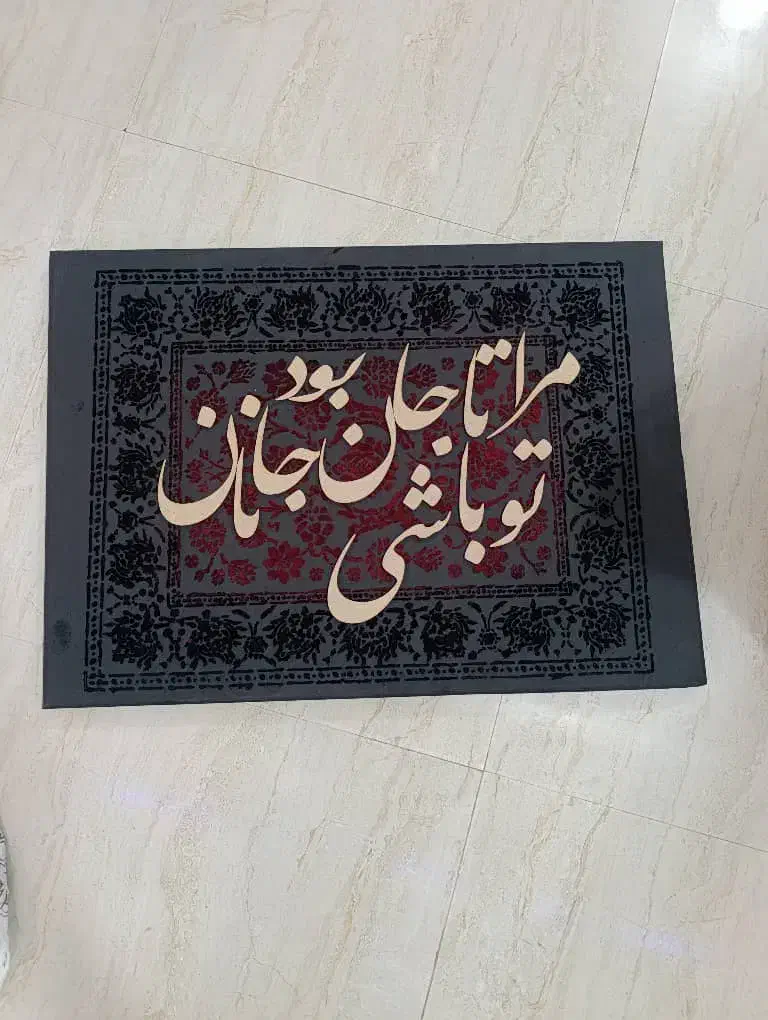 مرا تا جان بود
تو باشی جانان